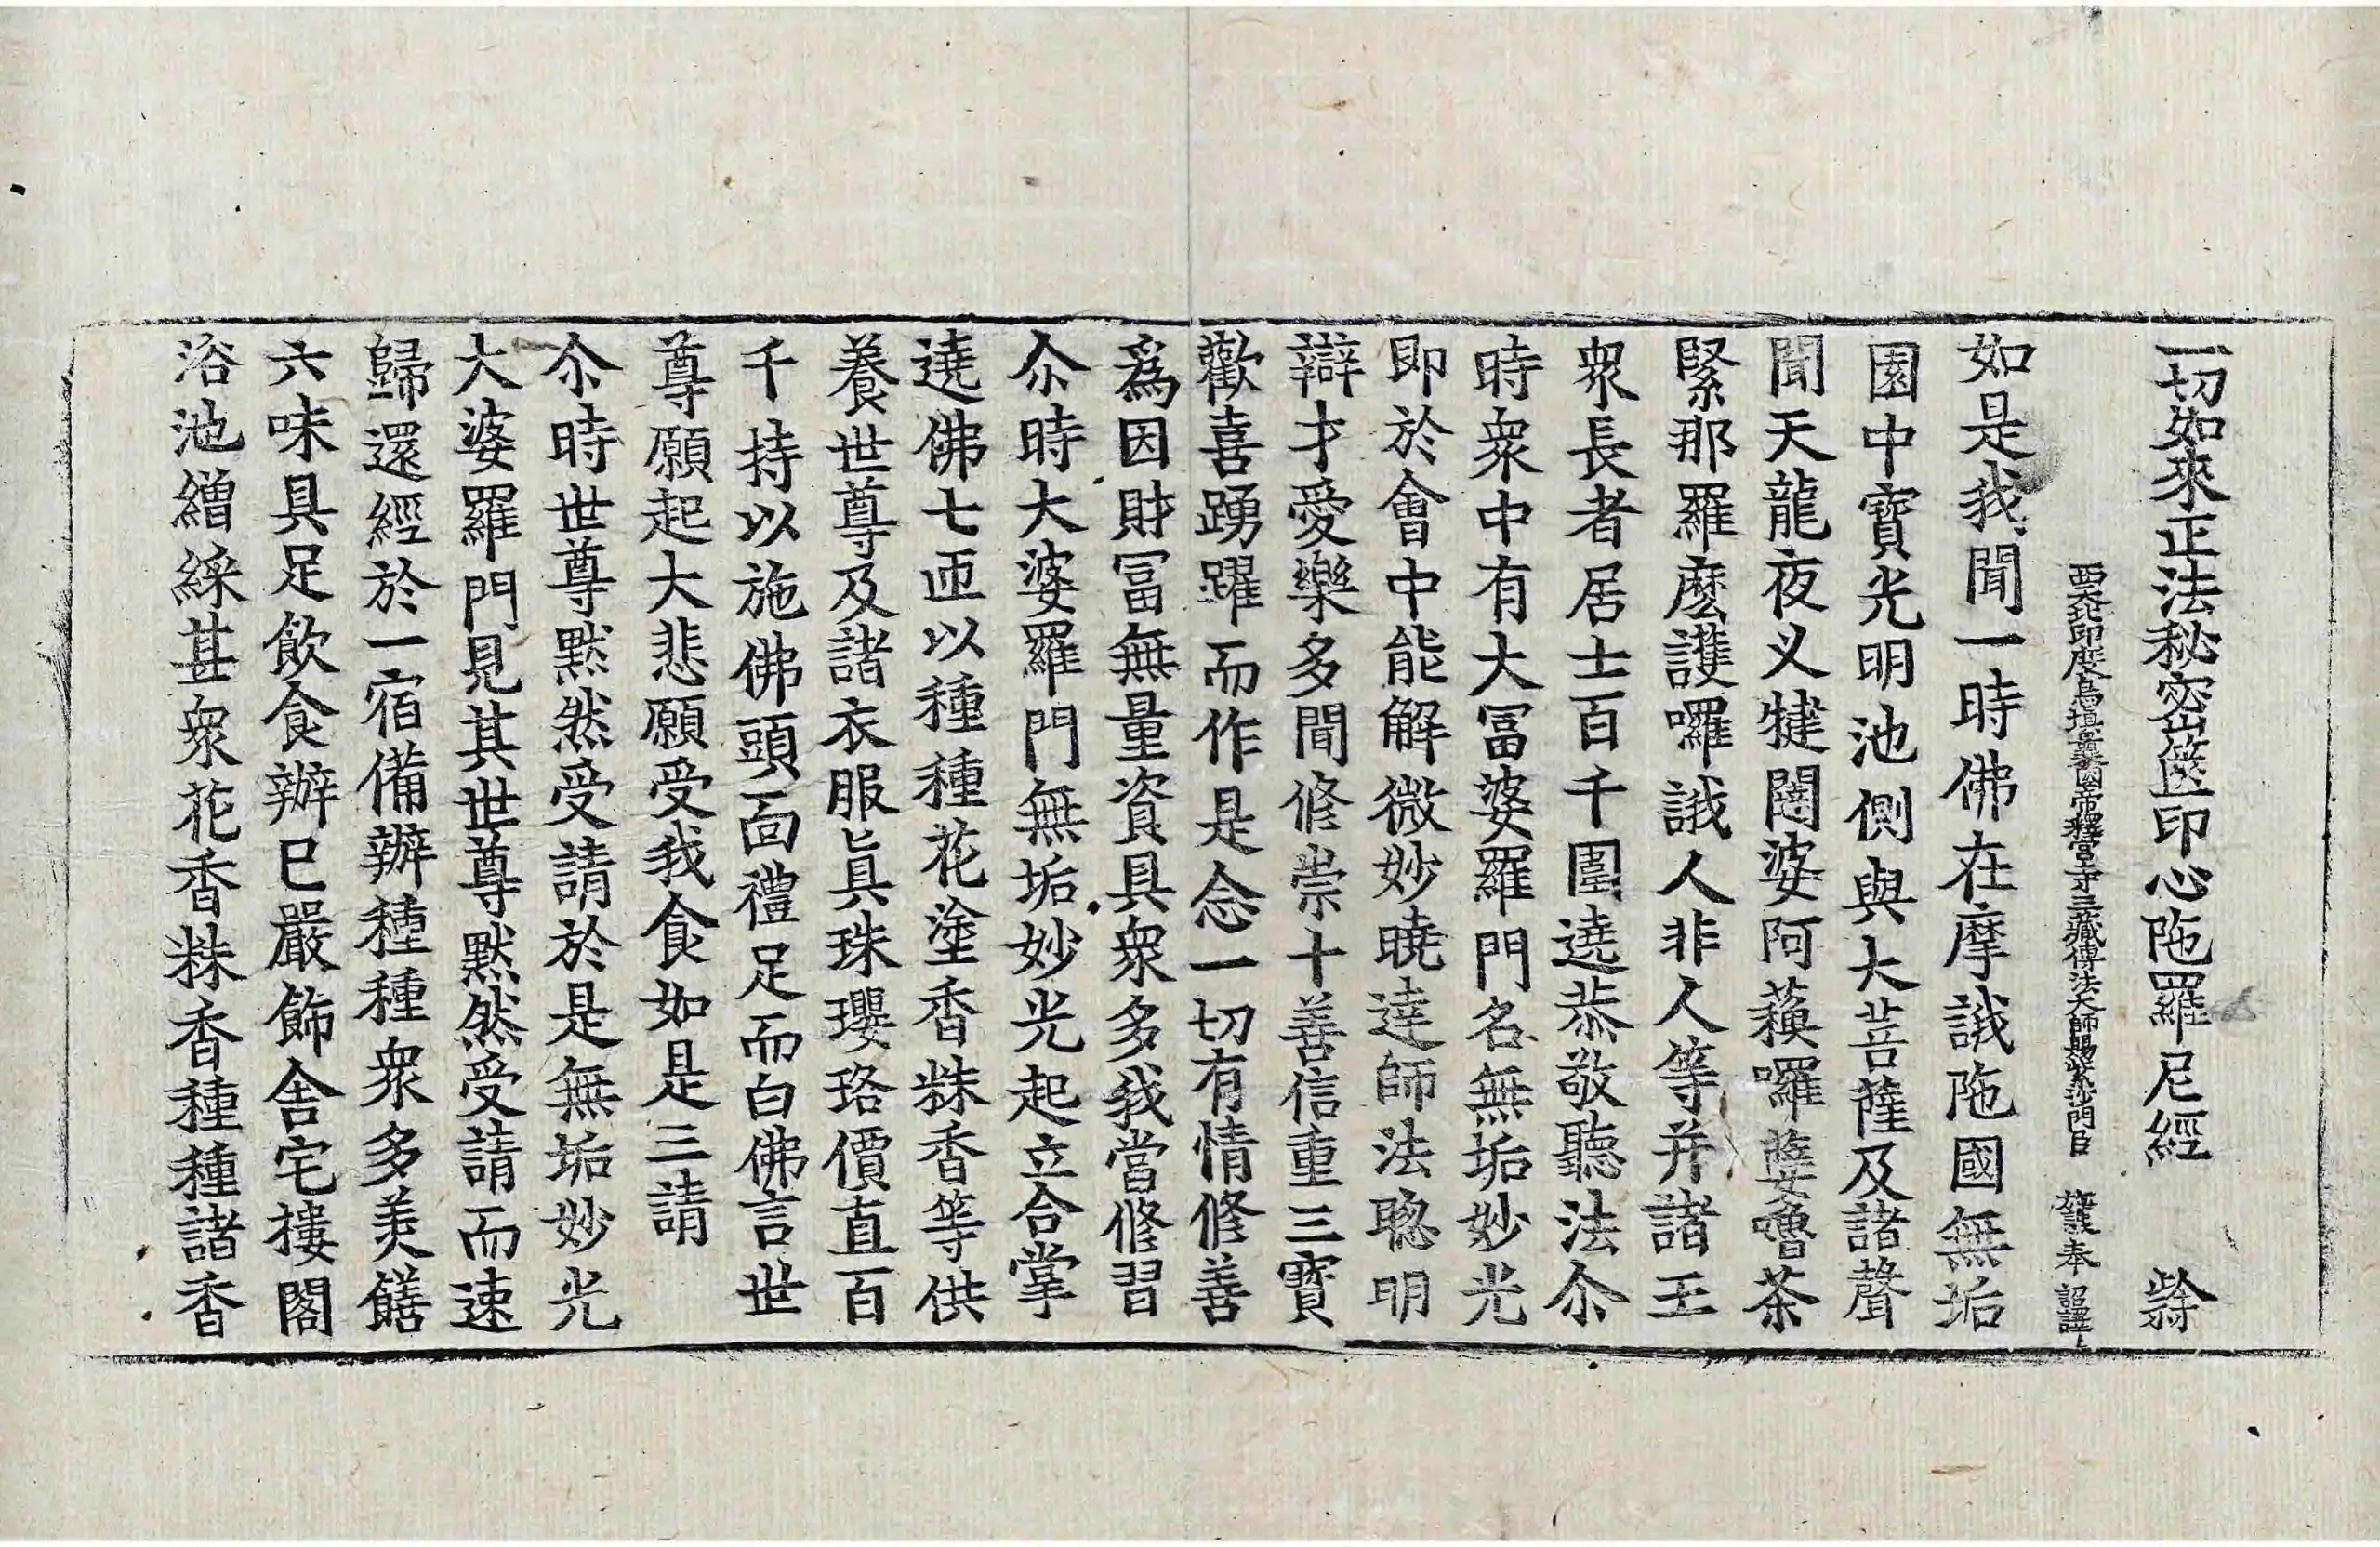 一切如來正法秘密篋印心陁羅尼經　紫
西天北印度烏塡曩國帝釋宮寺三藏傳法大師賜紫沙門臣　施護奉　詔譯
如是我聞一時佛在摩誐陁國無垢
園中寶光明池側與大菩薩及諸聲
聞天龍夜义犍闥婆阿蘓囉蘖嚕茶
緊那羅麽護囉誐人非人等并諸王
衆長者居士百千圍遶恭敬聽法尒
時衆中有大冨婆羅門名無垢妙光
即於會中能解微妙曉達師法聦明
辯才愛樂多聞修崇十善信重三寶
歡喜踴躍而作是念一切有情修善
爲因財冨無量資具衆多我當修習
尒時大婆羅門無垢妙光起立合掌
遶佛七匝以種種花塗香粖香等供
養世尊及諸衣服眞珠瓔珞價直百
千持以施佛頭面禮足而白佛言世
尊願起大悲願受我食如是三請
尒時世尊黙然受請於是無垢妙光
大婆羅門見其世尊黙然受請而速
歸還經於一宿備辦種種衆多美饍
六味具足飲食辦已嚴飾舍宅摟閣
浴池繒綵甚衆花香粖香種種諸香